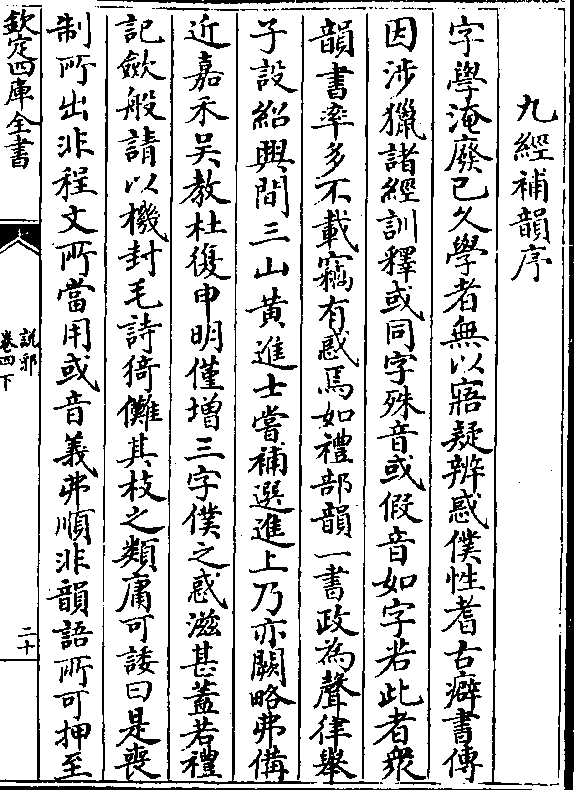 九經補韻序
字學淹廢已久學者無以寤疑辨惑僕性耆古癖書傳
因涉獵諸經訓釋或同字殊音或假音如字若此者衆
韻書率多不載竊有惑焉如禮部韻一書政為聲律舉
子設紹興間三山黄進士嘗補選進上乃亦闕略弗備
近嘉禾吴教杜復申明僅増三字僕之惑滋甚蓋若禮
記歛般請以機封毛詩猗儺其枝之類庸可諉曰是喪
制所出非程文所當用或音義弗順非韻語所可押至
欽定四庫全書
說郛
卷四下
二十